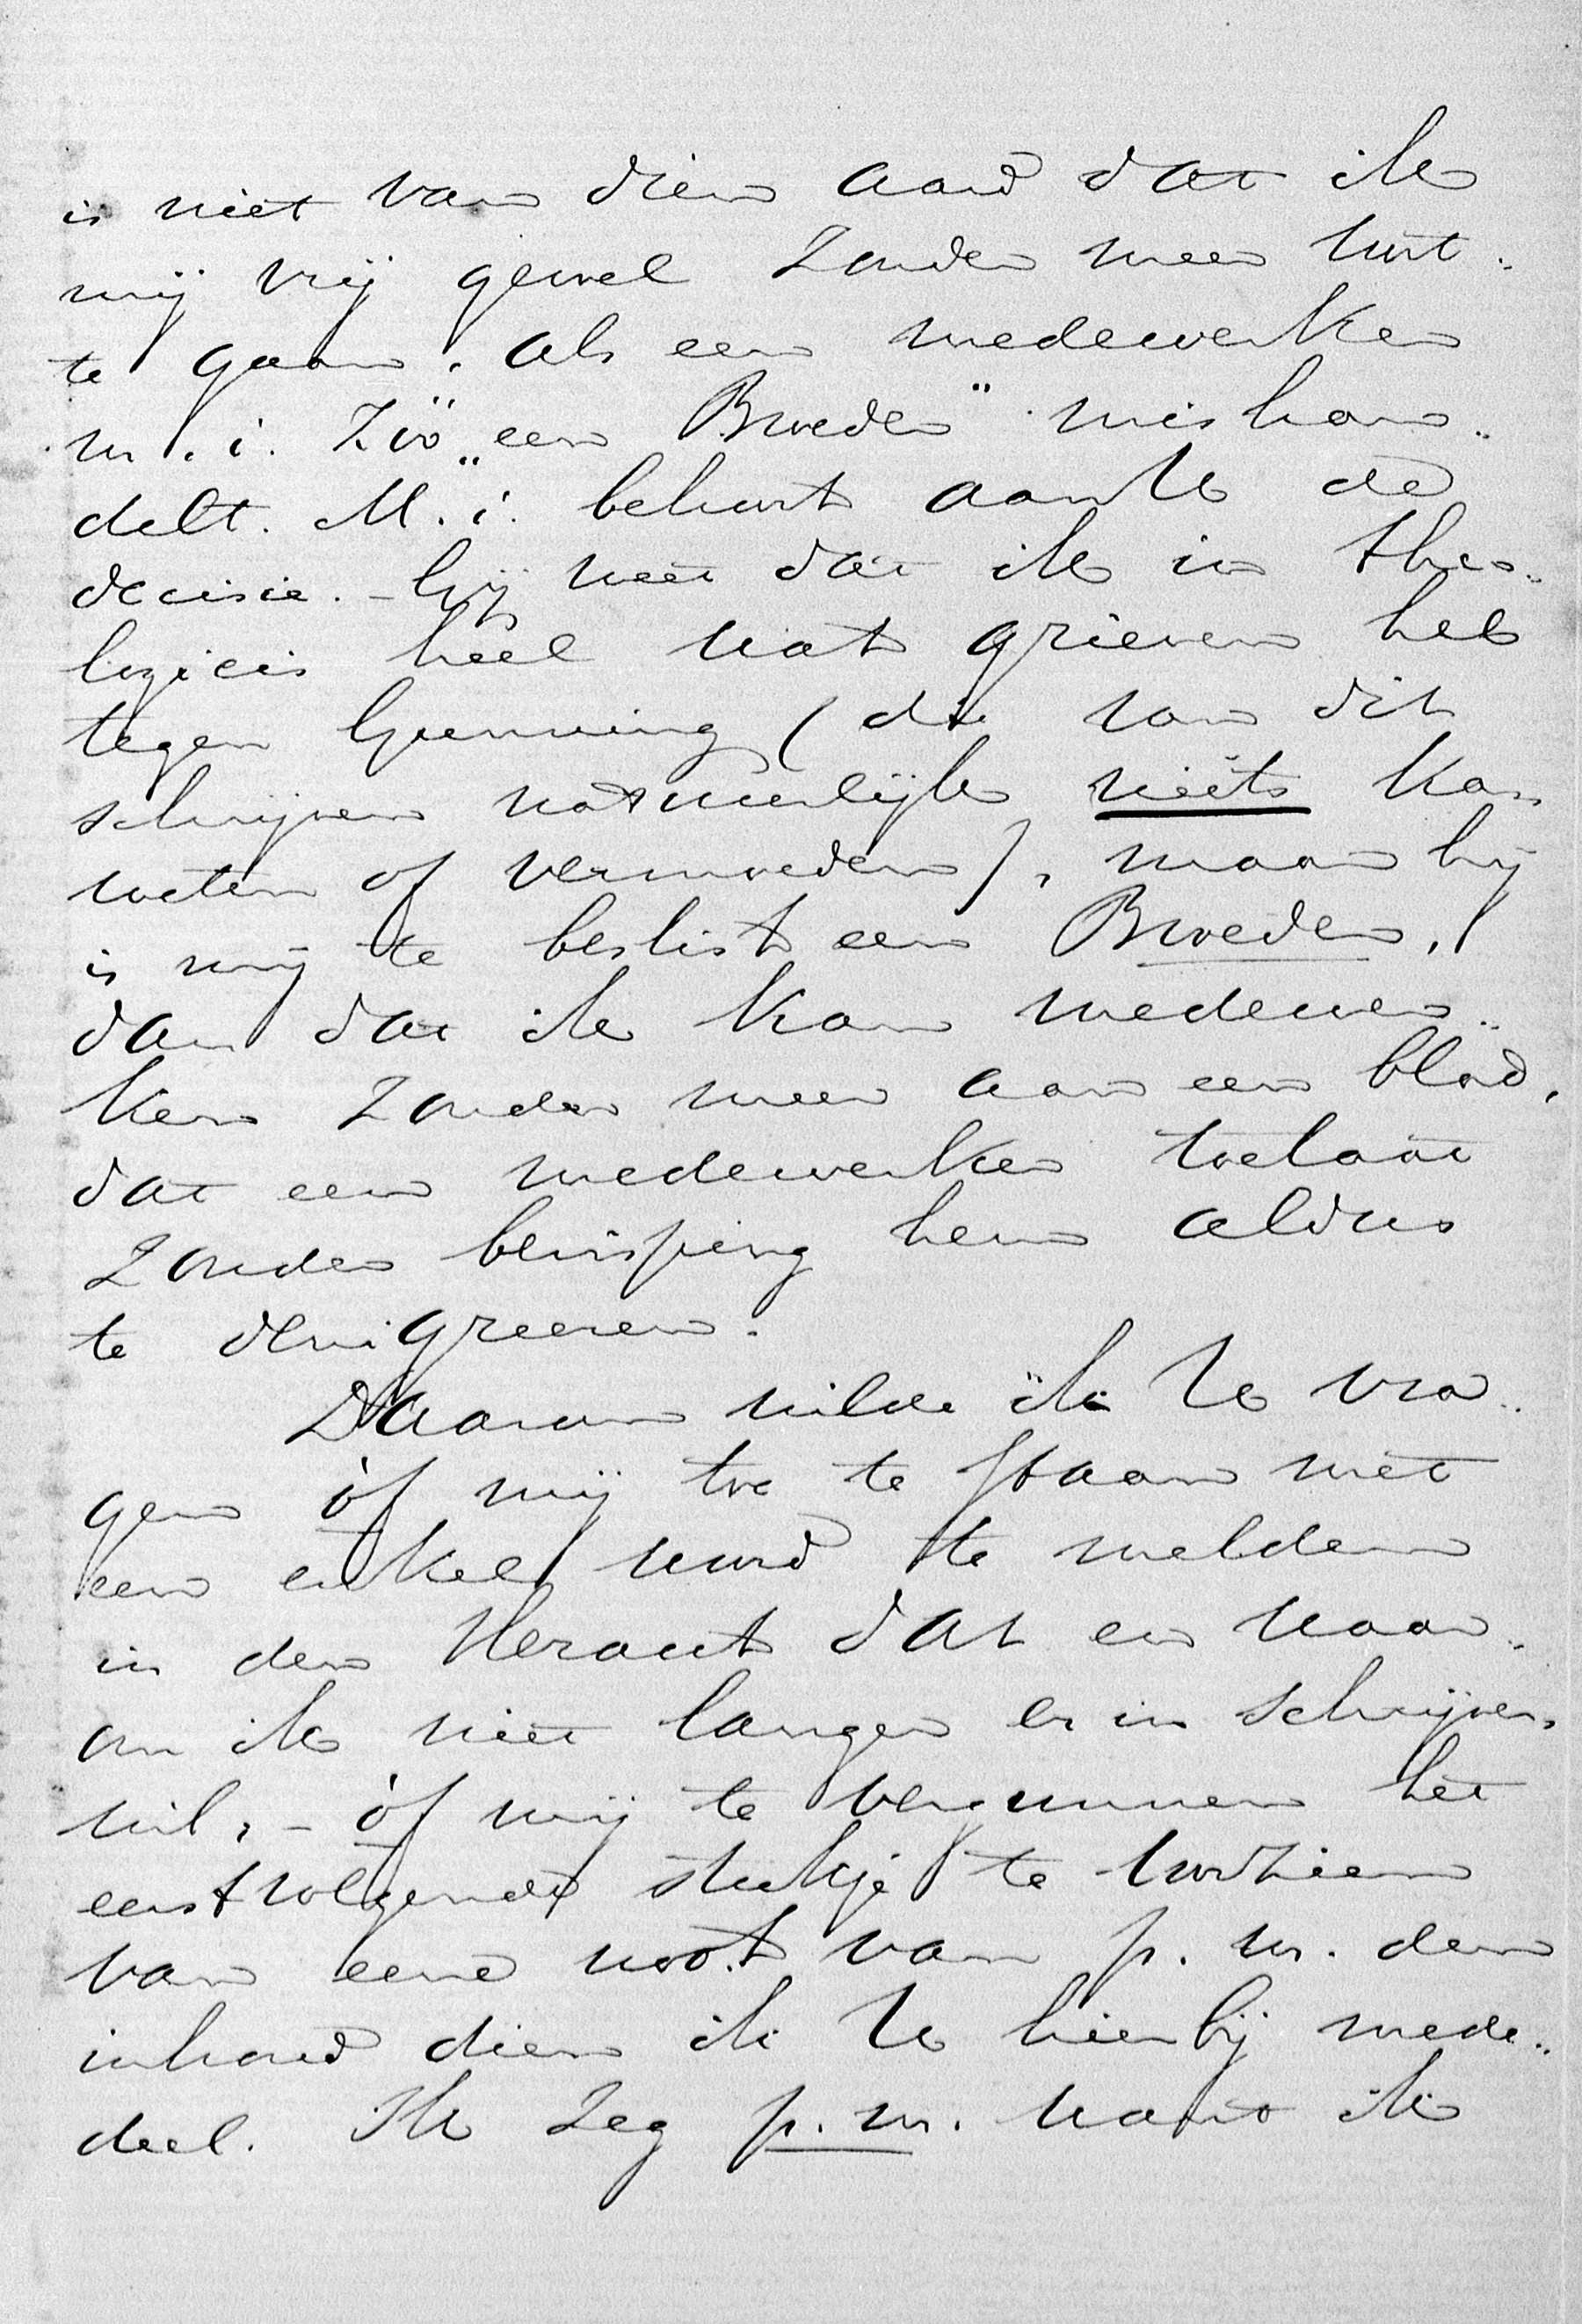 is niet van dien aard dat ik
mij vrij gevoel zonder meer voort
te gaan, als een medewerker
m. i. zóó „een Broeder" mishan-
delt. M. i. behoort aan U de
decisie. - Gij weet dat ik in theo-
logicis heel wat grieven heb
tegen Gunning (die van dit
schrijven natuurlijk niets kan
weten of vermoeden), maar hij
is mij te beslist een Broeder,
dan dat ik kan medewer-
ken zonder meer aan een blad,
dat een medewerker toelaat
zonder berisping hem aldus
te denigreeren.
Daarom wilde ik U vra-
gen òf mij toe te staan met
een enkel woord te melden
in den Heraut dat en waar-
om ik niet langer er in schrijven
wil, - òf mij te vergunnen het
eerstvolgende stukje te voorzien
van eene noot van p. m. den
inhoud dien ik U hierbij mede-
deel. Ik zeg p. m. want ik